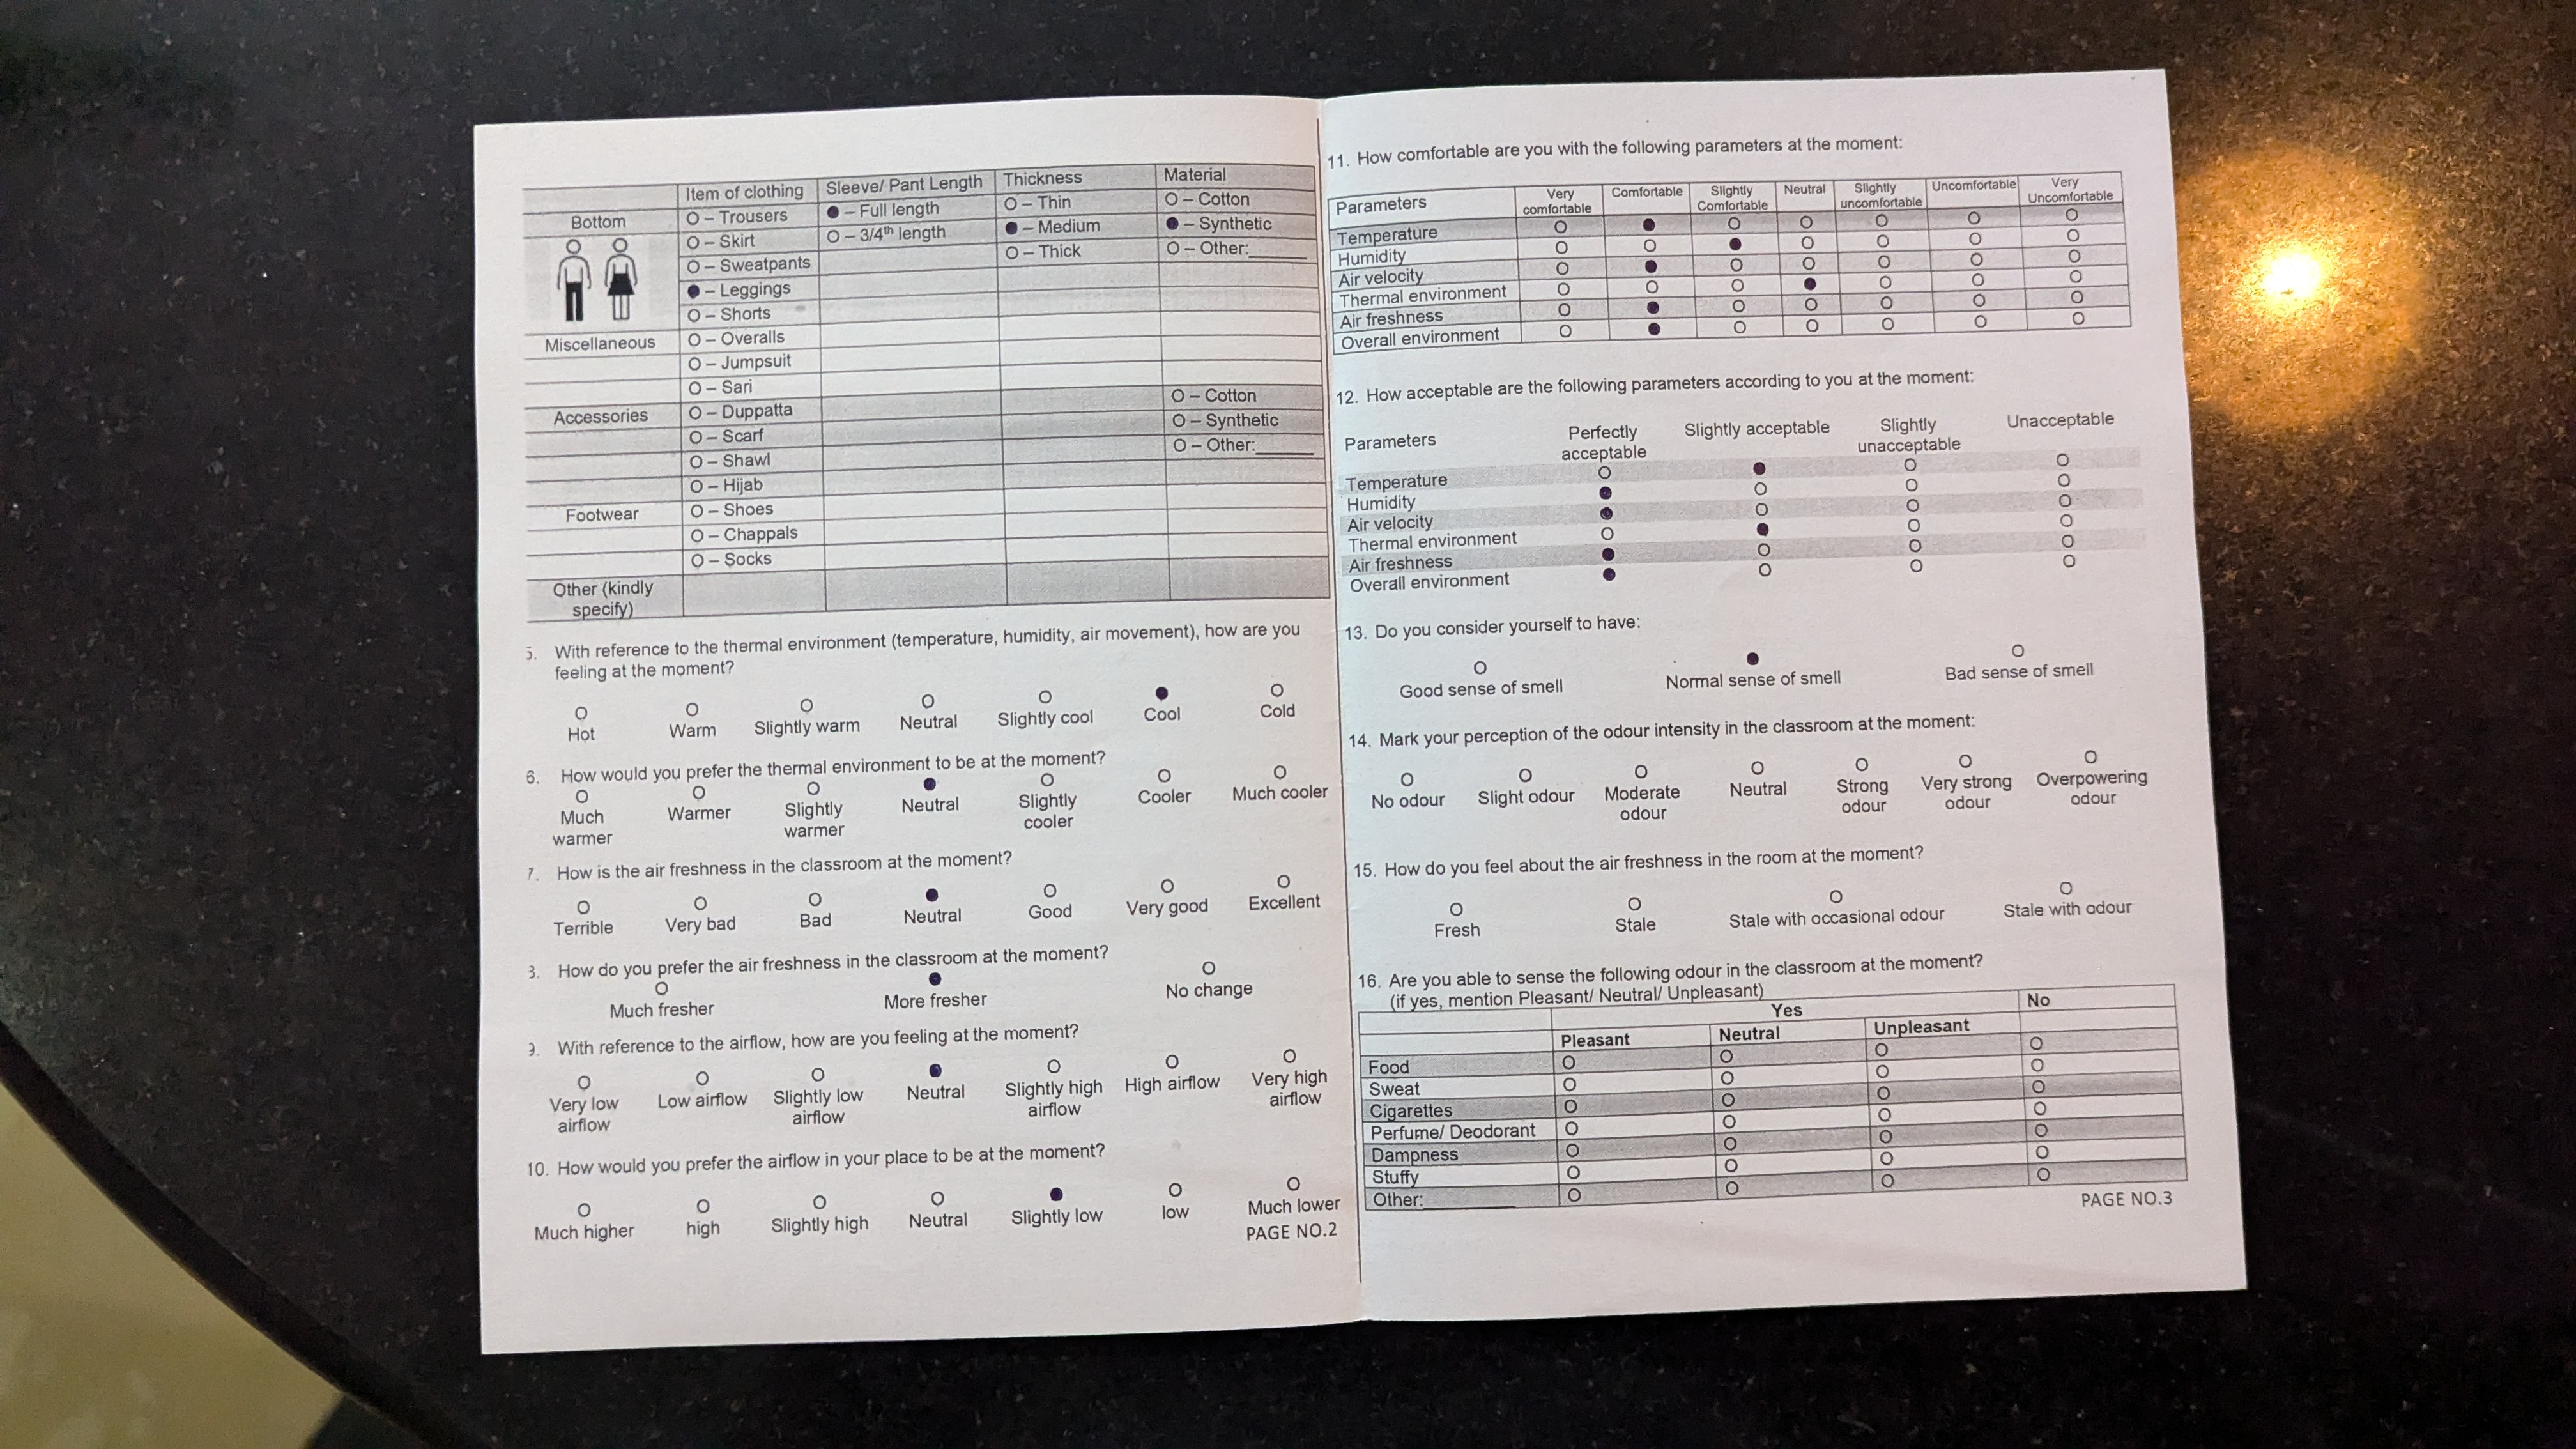 Item of clothing Sleeve/ Pant Length Thickness Material
Bottom O – Trousers ● – Full length O – Thin O – Cotton
O – Skirt O – 3/4th length ● – Medium ● – Synthetic
O – Sweatpants O – Thick O – Other:______
● – Leggings
O – Shorts
Miscellaneous O – Overalls
O – Jumpsuit
O – Sari
Accessories O – Duppatta O – Cotton
O – Scarf O – Synthetic
O – Shawl O – Other:______
O – Hijab
Footwear O – Shoes
O – Chappals
O – Socks
Other (kindly
specify)
5. With reference to the thermal environment (temperature, humidity, air movement), how are you
feeling at the moment?
O O O O O ● O
Hot Warm Slightly warm Neutral Slightly cool Cool Cold
6. How would you prefer the thermal environment to be at the moment?
O O O ● O O O
Much Warmer Slightly Neutral Slightly Cooler Much cooler
warmer warmer cooler
7. How is the air freshness in the classroom at the moment?
O O O ● O O O
Terrible Very bad Bad Neutral Good Very good Excellent
How do you prefer the air freshness in the classroom at the moment?
O ● O
Much fresher More fresher No change
With reference to the airflow, how are you feeling at the moment?
O O O ● O O O
Very low Low airflow Slightly low Neutral Slightly high High airflow Very high
airflow airflow airflow airflow
10. How would you prefer the airflow in your place to be at the moment?
O O O O ● O O
Much higher high Slightly high Neutral Slightly low low Much lower
PAGE NO.2
11. How comfortable are you with the following parameters at the moment:
Parameters Very Comfortable Slightly Neutral Slightly Uncomfortable Very
comfortable Comfortable uncomfortable Uncomfortable
Temperature O ● O O O O O
Humidity O O ● O O O O
Air velocity O ● O O O O O
Thermal environment O O O ● O O O
Air freshness O ● O O O O O
Overall environment O ● O O O O O
12. How acceptable are the following parameters according to you at the moment:
Parameters Perfectly Slightly acceptable Slightly Unacceptable
acceptable unacceptable
Temperature O ● O O
Humidity ● O O O
Air velocity ● O O O
Thermal environment O ● O O
Air freshness ● O O O
Overall environment ● O O O
13. Do you consider yourself to have:
O ● O
Good sense of smell Normal sense of smell Bad sense of smell
14. Mark your perception of the odour intensity in the classroom at the moment:
O O O O O O O
No odour Slight odour Moderate Neutral Strong Very strong Overpowering
odour odour odour odour
15. How do you feel about the air freshness in the room at the moment?
O O O O
Fresh Stale Stale with occasional odour Stale with odour
16. Are you able to sense the following odour in the classroom at the moment?
(if yes, mention Pleasant/ Neutral/ Unpleasant)
Yes No
Pleasant Neutral Unpleasant
Food O O O O
Sweat O O O O
Cigarettes O O O O
Perfume/ Deodorant O O O O
Dampness O O O O
Stuffy O O O O
Other:__________ O O O O
PAGE NO.3